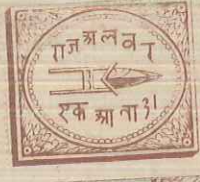 राज अलवर
एक आना ३।